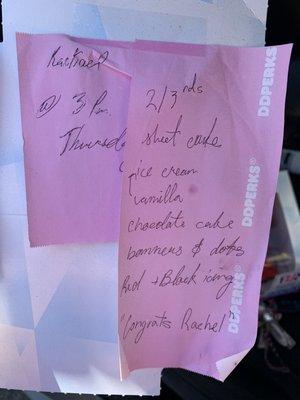 Rachael
@ 3 Pm
Thursda
2/3 rds
sheet cake
ice cream
vanilla
chocolate cake
banners &
Red + Black icing
"Congrats Rachel"
DDPERKS
DDPERKS®
DDPERKS®
DDPERKS®